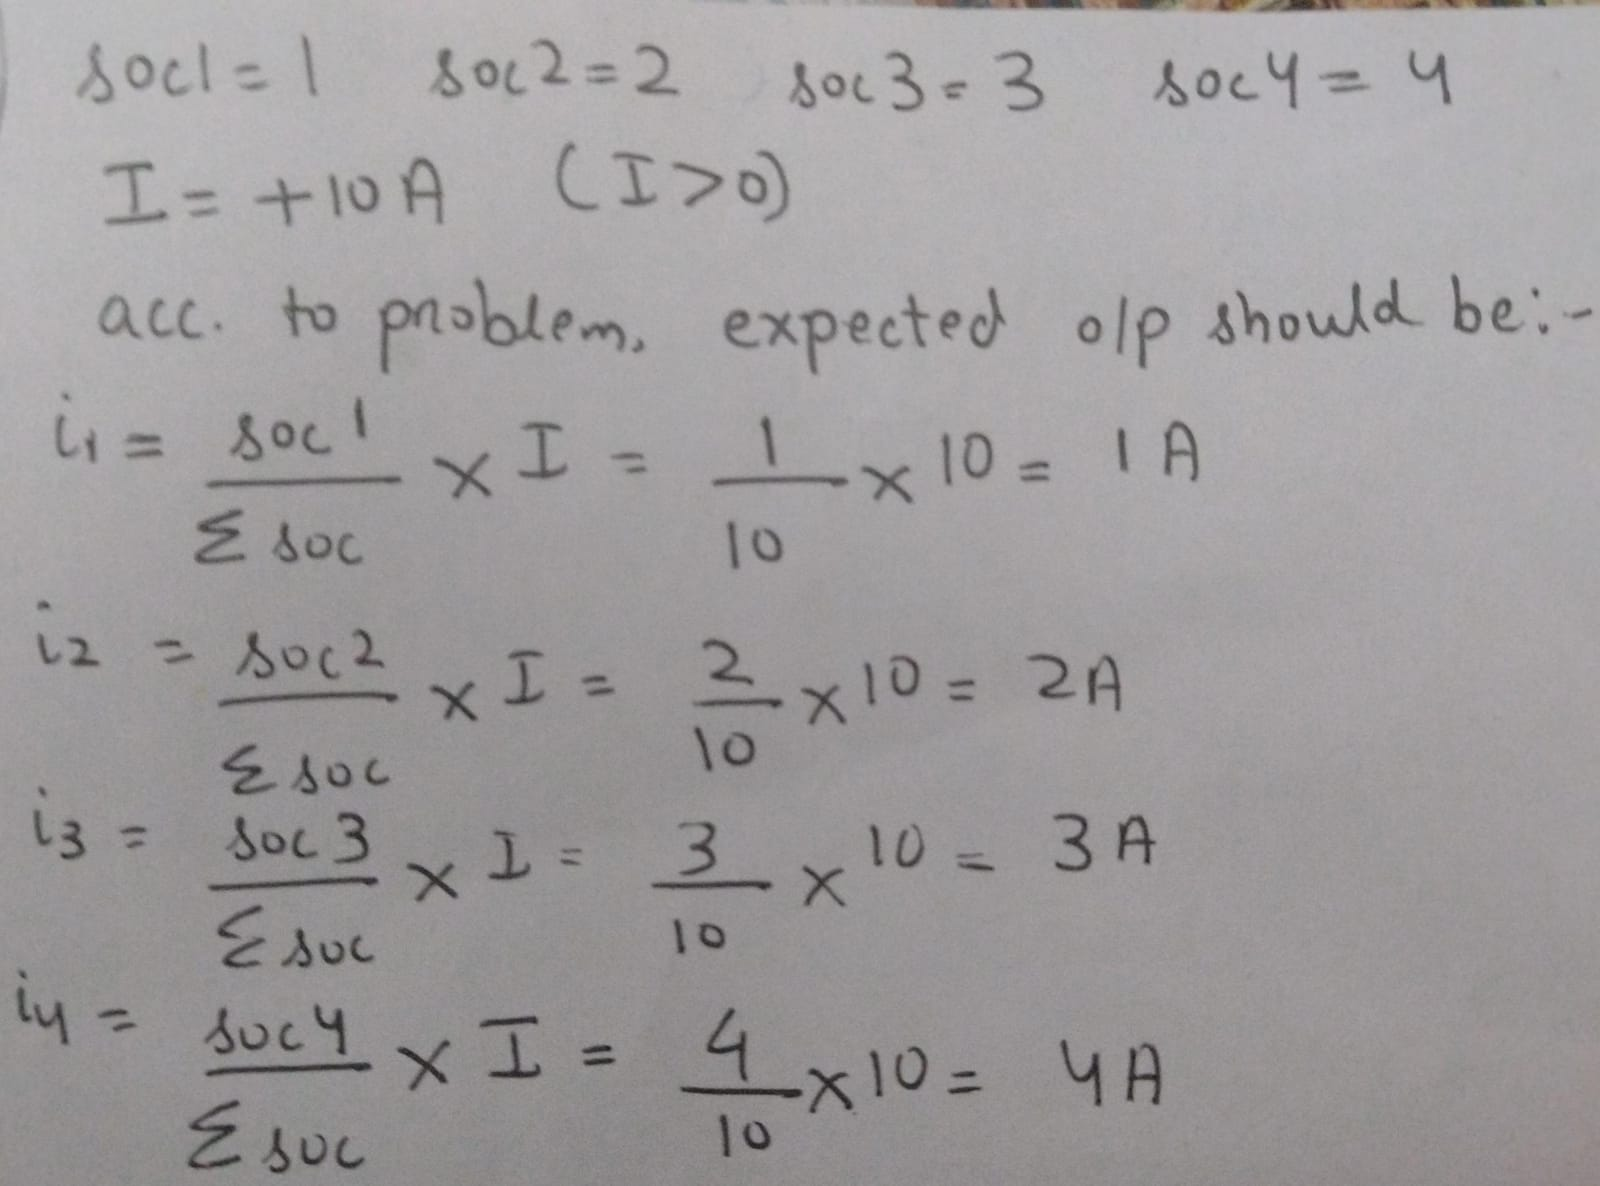 soc1 = 1 soc2 = 2 soc3 = 3 soc4 = 4
I = +10 A (I>0)
acc. to problem, expected o/p should be:-
i1 = soc1 / Σsoc × I = 1/10 × 10 = 1 A
i2 = soc2 / Σsoc × I = 2/10 × 10 = 2A
i3 = soc3 / Σsoc × I = 3/10 × 10 = 3 A
i4 = soc4 / Σsoc × I = 4/10 × 10 = 4 A